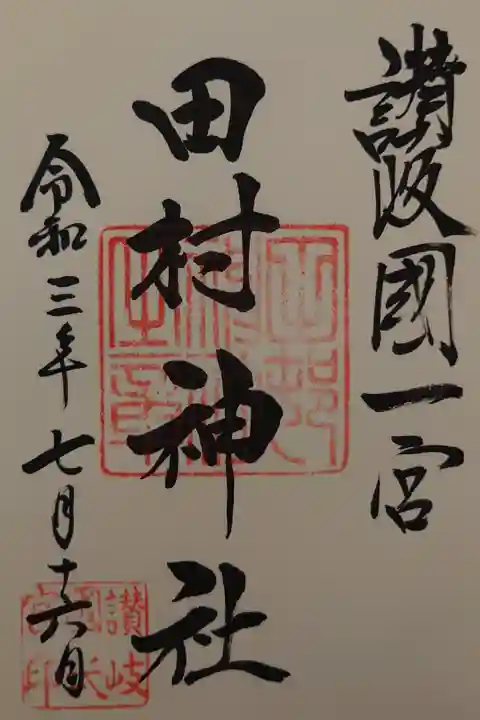 讃岐國一宮
田村神社
令和三年七月十六日
讃岐
宮印